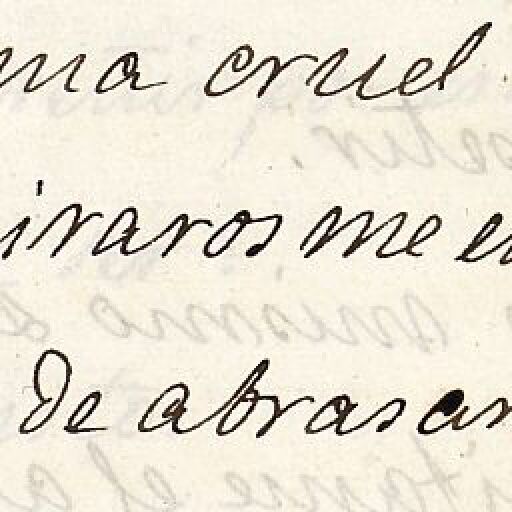 ma cruel
iraros me en
de abrasar